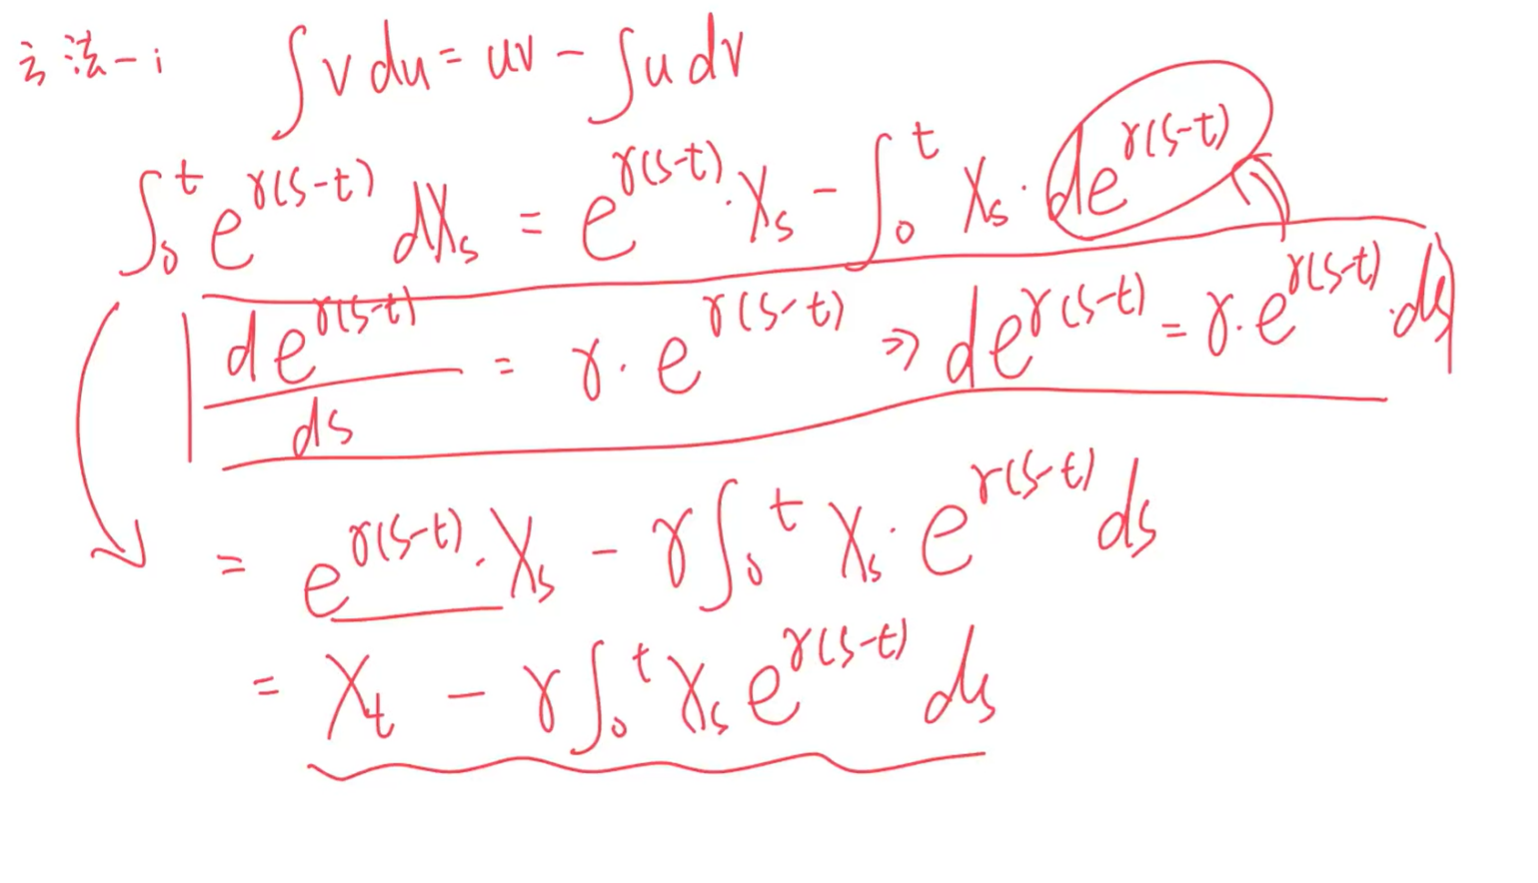 方法一: ∫v du = uv - ∫u dv
∫₀ᵗ e^{γ(s-t)} dX_s = e^{γ(s-t)}·X_s - ∫₀ᵗ X_s·de^{γ(s-t)}
de^{γ(s-t)}/ds = γ·e^{γ(s-t)} ⇒ de^{γ(s-t)} = γ·e^{γ(s-t)}·ds
= e^{γ(s-t)}·X_s - γ∫₀ᵗ X_s·e^{γ(s-t)} ds
= X_t - γ∫₀ᵗ X_s e^{γ(s-t)} ds